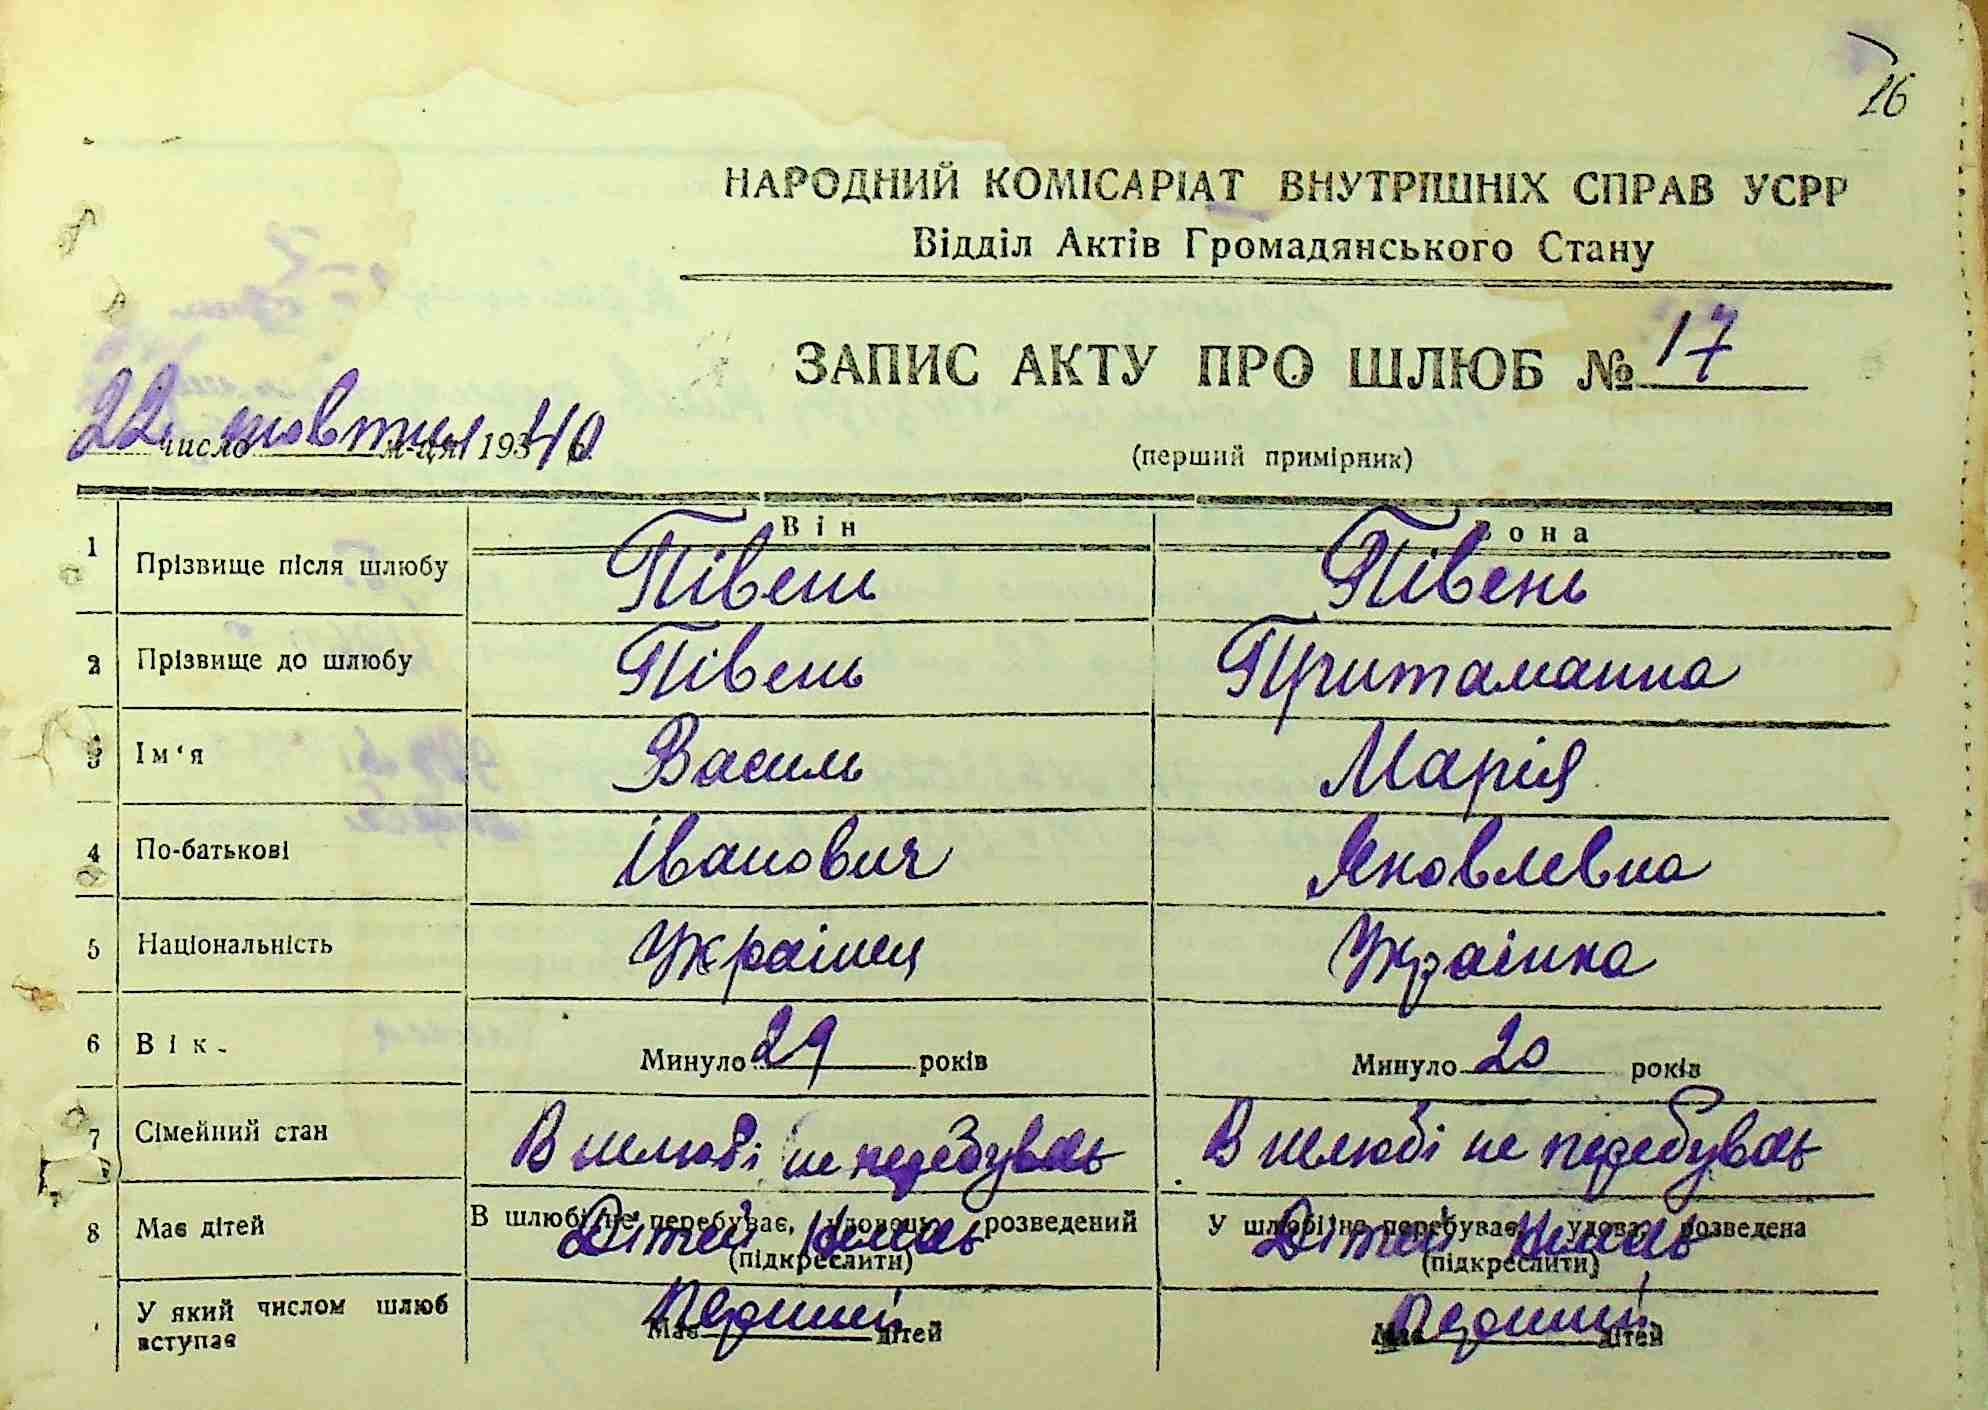 26
НАРОДНИЙ КОМІСАРІАТ ВНУТРІШНІХ СПРАВ УСРР
Відділ Актів Громадянського Стану
ЗАПИС АКТУ ПРО ШЛЮБ № 17
22 число жовтня м-ця 1940
(перший примірник)
Він Вона
1 Прізвище після шлюбу Півень Півень
2 Прізвище до шлюбу Півень Притаманна
3 Ім'я Василь Марія
4 По-батькові Іванович Яковлевна
5 Національність Українец Украінка
6 Вік. Минуло 29 років Минуло 20 років
7 Сімейний стан В шлюбі не перебуває В шлюбі не перебуває
8 Має дітей В шлюбі не перебуває, удовець, розведений У шлюбі не перебуває, удова, розведена
Дітей немає Дітей немає
(підкреслити) (підкреслити)
У який числом шлюб вступає Перший Перший
Має дітей Має дітей